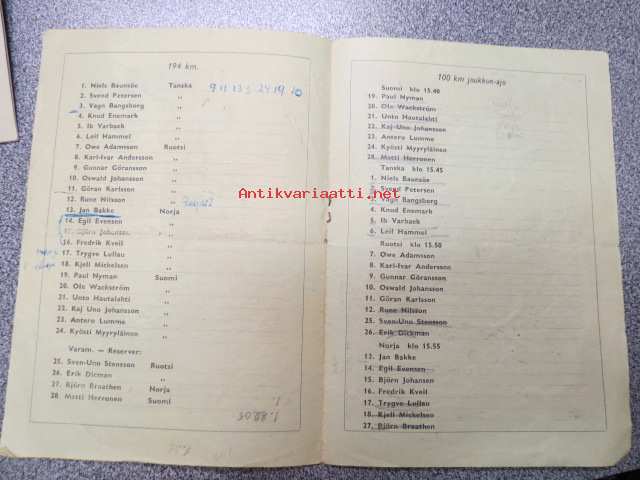 194 km.
1. Niels Baunsöe Tanska 9 11 13
2. Svend Petersen „
3. Vagn Bangsborg „
4. Knud Enemark „
5. Ib Varbæk „
6. Leif Hammel „
7. Owe Adamsson Ruotsi
8. Karl-Ivar Andersson „
9. Gunnar Göransson „
10. Oswald Johansson „
11. Göran Karlsson „
12. Rune Nilsson „
13. Jan Bakke Norja
14. Egil Evensen „
15. Björn Johansen „
16. Fredrik Kveil „
17. Trygve Lullau „
18. Kjell Mickelsen „
19. Paul Nyman Suomi
20. Olo Wackström „
21. Unto Hautalahti „
22. Kaj Uno Johansson „
23. Antero Lumme „
24. Kyösti Myyryläinen „
Varam. — Reserver:
25. Sven-Uno Stensson Ruotsi
26. Erik Dicman „
27. Björn Braathen Norja
28. Matti Herronen Suomi
100 km joukkue-ajo
Suomi klo 15.40
19. Paul Nyman
20. Olo Wackström
21. Unto Hautalahti
22. Kaj-Uno Johansson
23. Antero Lumme
24. Kyösti Myyryläinen
28. Matti Herronen
Tanska klo 15.45
1. Niels Baunsöe
2. Svend Petersen
3. Vagn Bangsborg
4. Knud Enemark
5. Ib Varbaek
6. Leif Hammel
Ruotsi klo 15.50
7. Owe Adamsson
8. Karl-Ivar Andersson
9. Gunnar Göransson
10. Oswald Johansson
11. Göran Karlsson
12. Rune Nilsson
25. Sven-Uno Stensson
26. Erik Dickman
Norja klo 15.55
13. Jan Bakke
14. Egil Evensen
15. Björn Johansen
16. Fredrik Kveil
17. Trygve Lullau
18. Kjell Mickelsen
27. Björn Braathen
Antikvariaatti.net